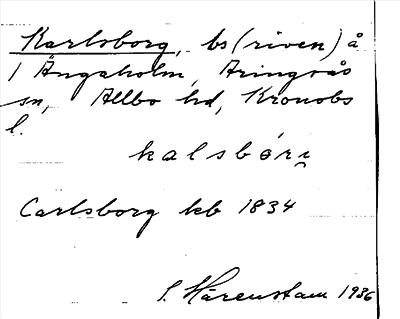 Karlsborg, bs (riven) å
1 Ängaholm, Aringsås
sn, Allbo hd, Kronobs
l.
kalsbóri̯
Carlsborg kb 1834
S. Härenstam 1936